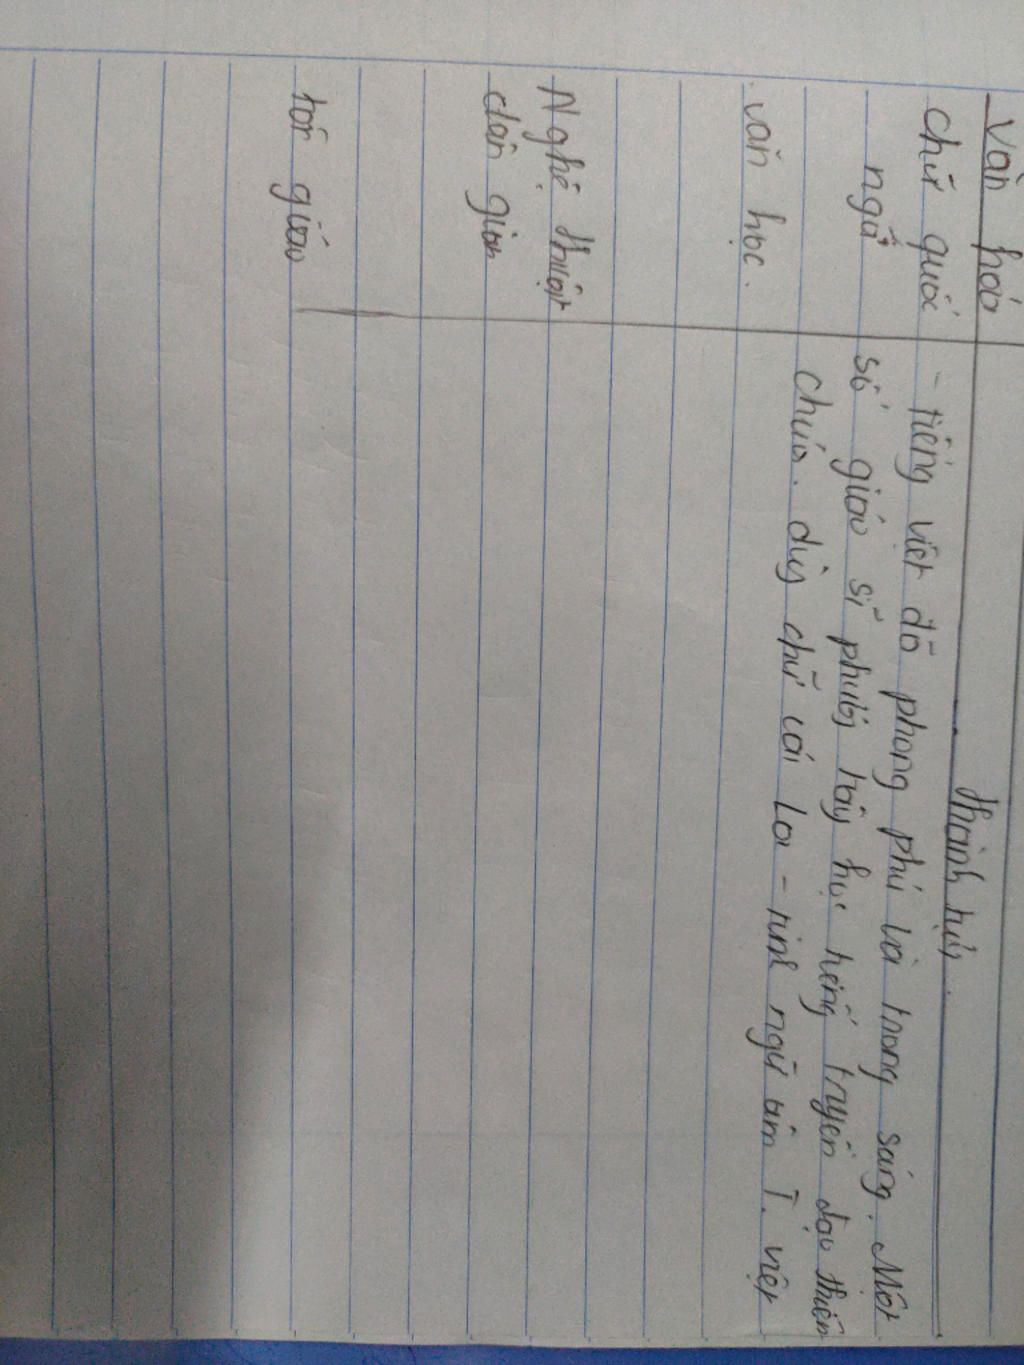 Văn hóa
thành tựu.
chữ quốc
ngữ
- tiếng việt đã phong phú và trong sáng. Một
số giáo sĩ phương tây học tiếng truyền đạo thiên
chúa. dùng chữ cái La - tinh ngữ âm T. việt
văn học.
Nghệ thuật
dân gian
tôn giáo